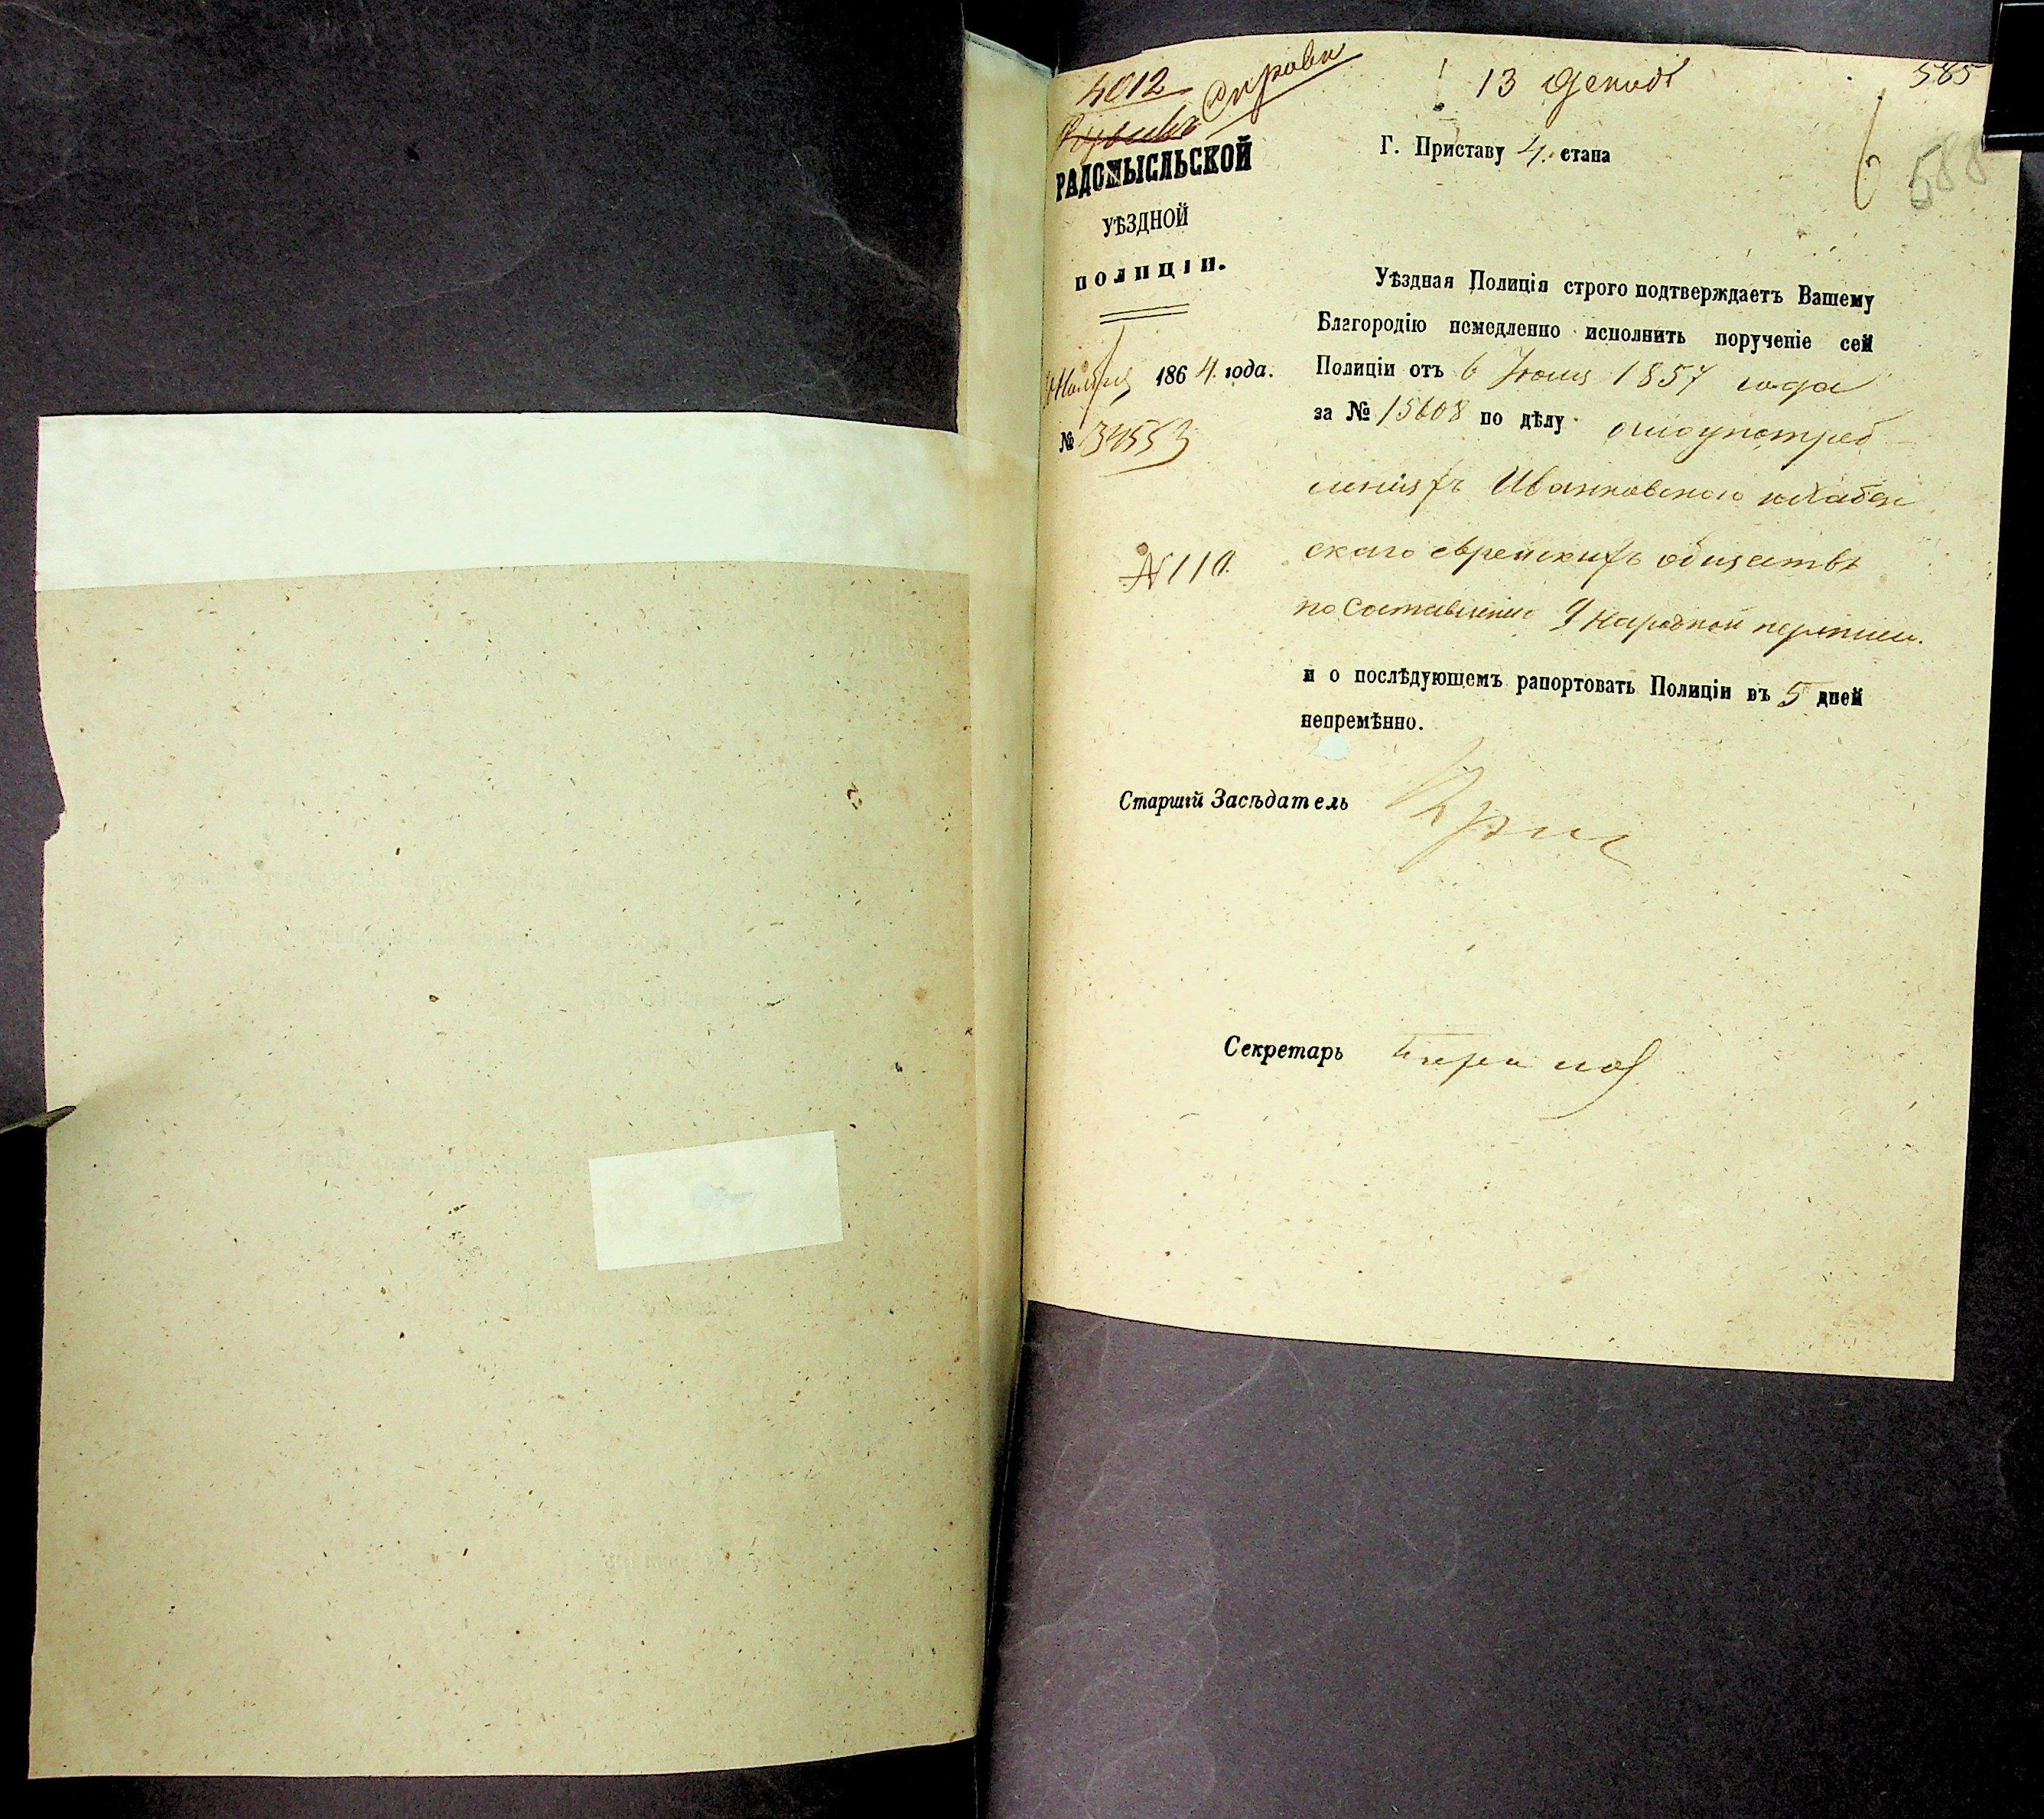 4012
Справк
13 Декабр
585
588
РАДОМЫСЛЬСКОЙ
УѢЗДНОЙ
ПОЛИЦІИ.
Ноября 1864 года.
№ 34553
№ 110.
Г. Приставу 4. стана
Уѣздная Полиція строго подтверждаетъ Вашему
Благородію немедленно исполнить порученіе сей
Полиціи отъ 6 Іюня 1857 года
за № 15608 по дѣлу о злоупотреб
леніяхъ Иванковского и Хабен
скаго еврейскихъ обществъ
по составленію 9 народной переписи.
и о послѣдующемъ рапортовать Полиціи въ 5 дней
непремѣнно.
Старшій Засѣдатель
Секретарь